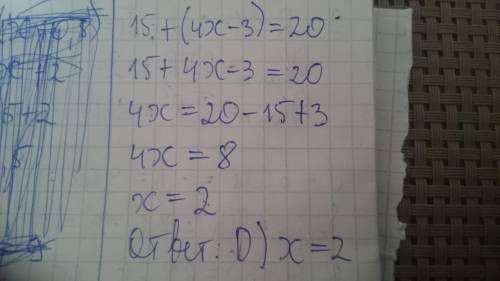 15 + (4x-3) = 20
15 + 4x - 3 = 20
4x = 20 - 15 + 3
4x = 8
x = 2
Ответ: D) x = 2